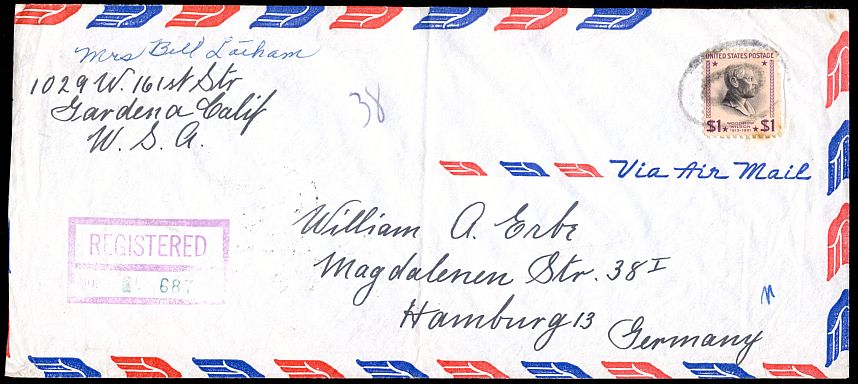 Mrs Bill Latham
1029 W. 161st Str
Gardena Calif
U. S. A.
38
UNITED STATES POSTAGE
WOODROW
WILSON
1913-1921
$1 $1
Via Air Mail
REGISTERED
NO. 687
William A. Erbe
Magdalenen Str. 38 I
Hamburg 13
Germany